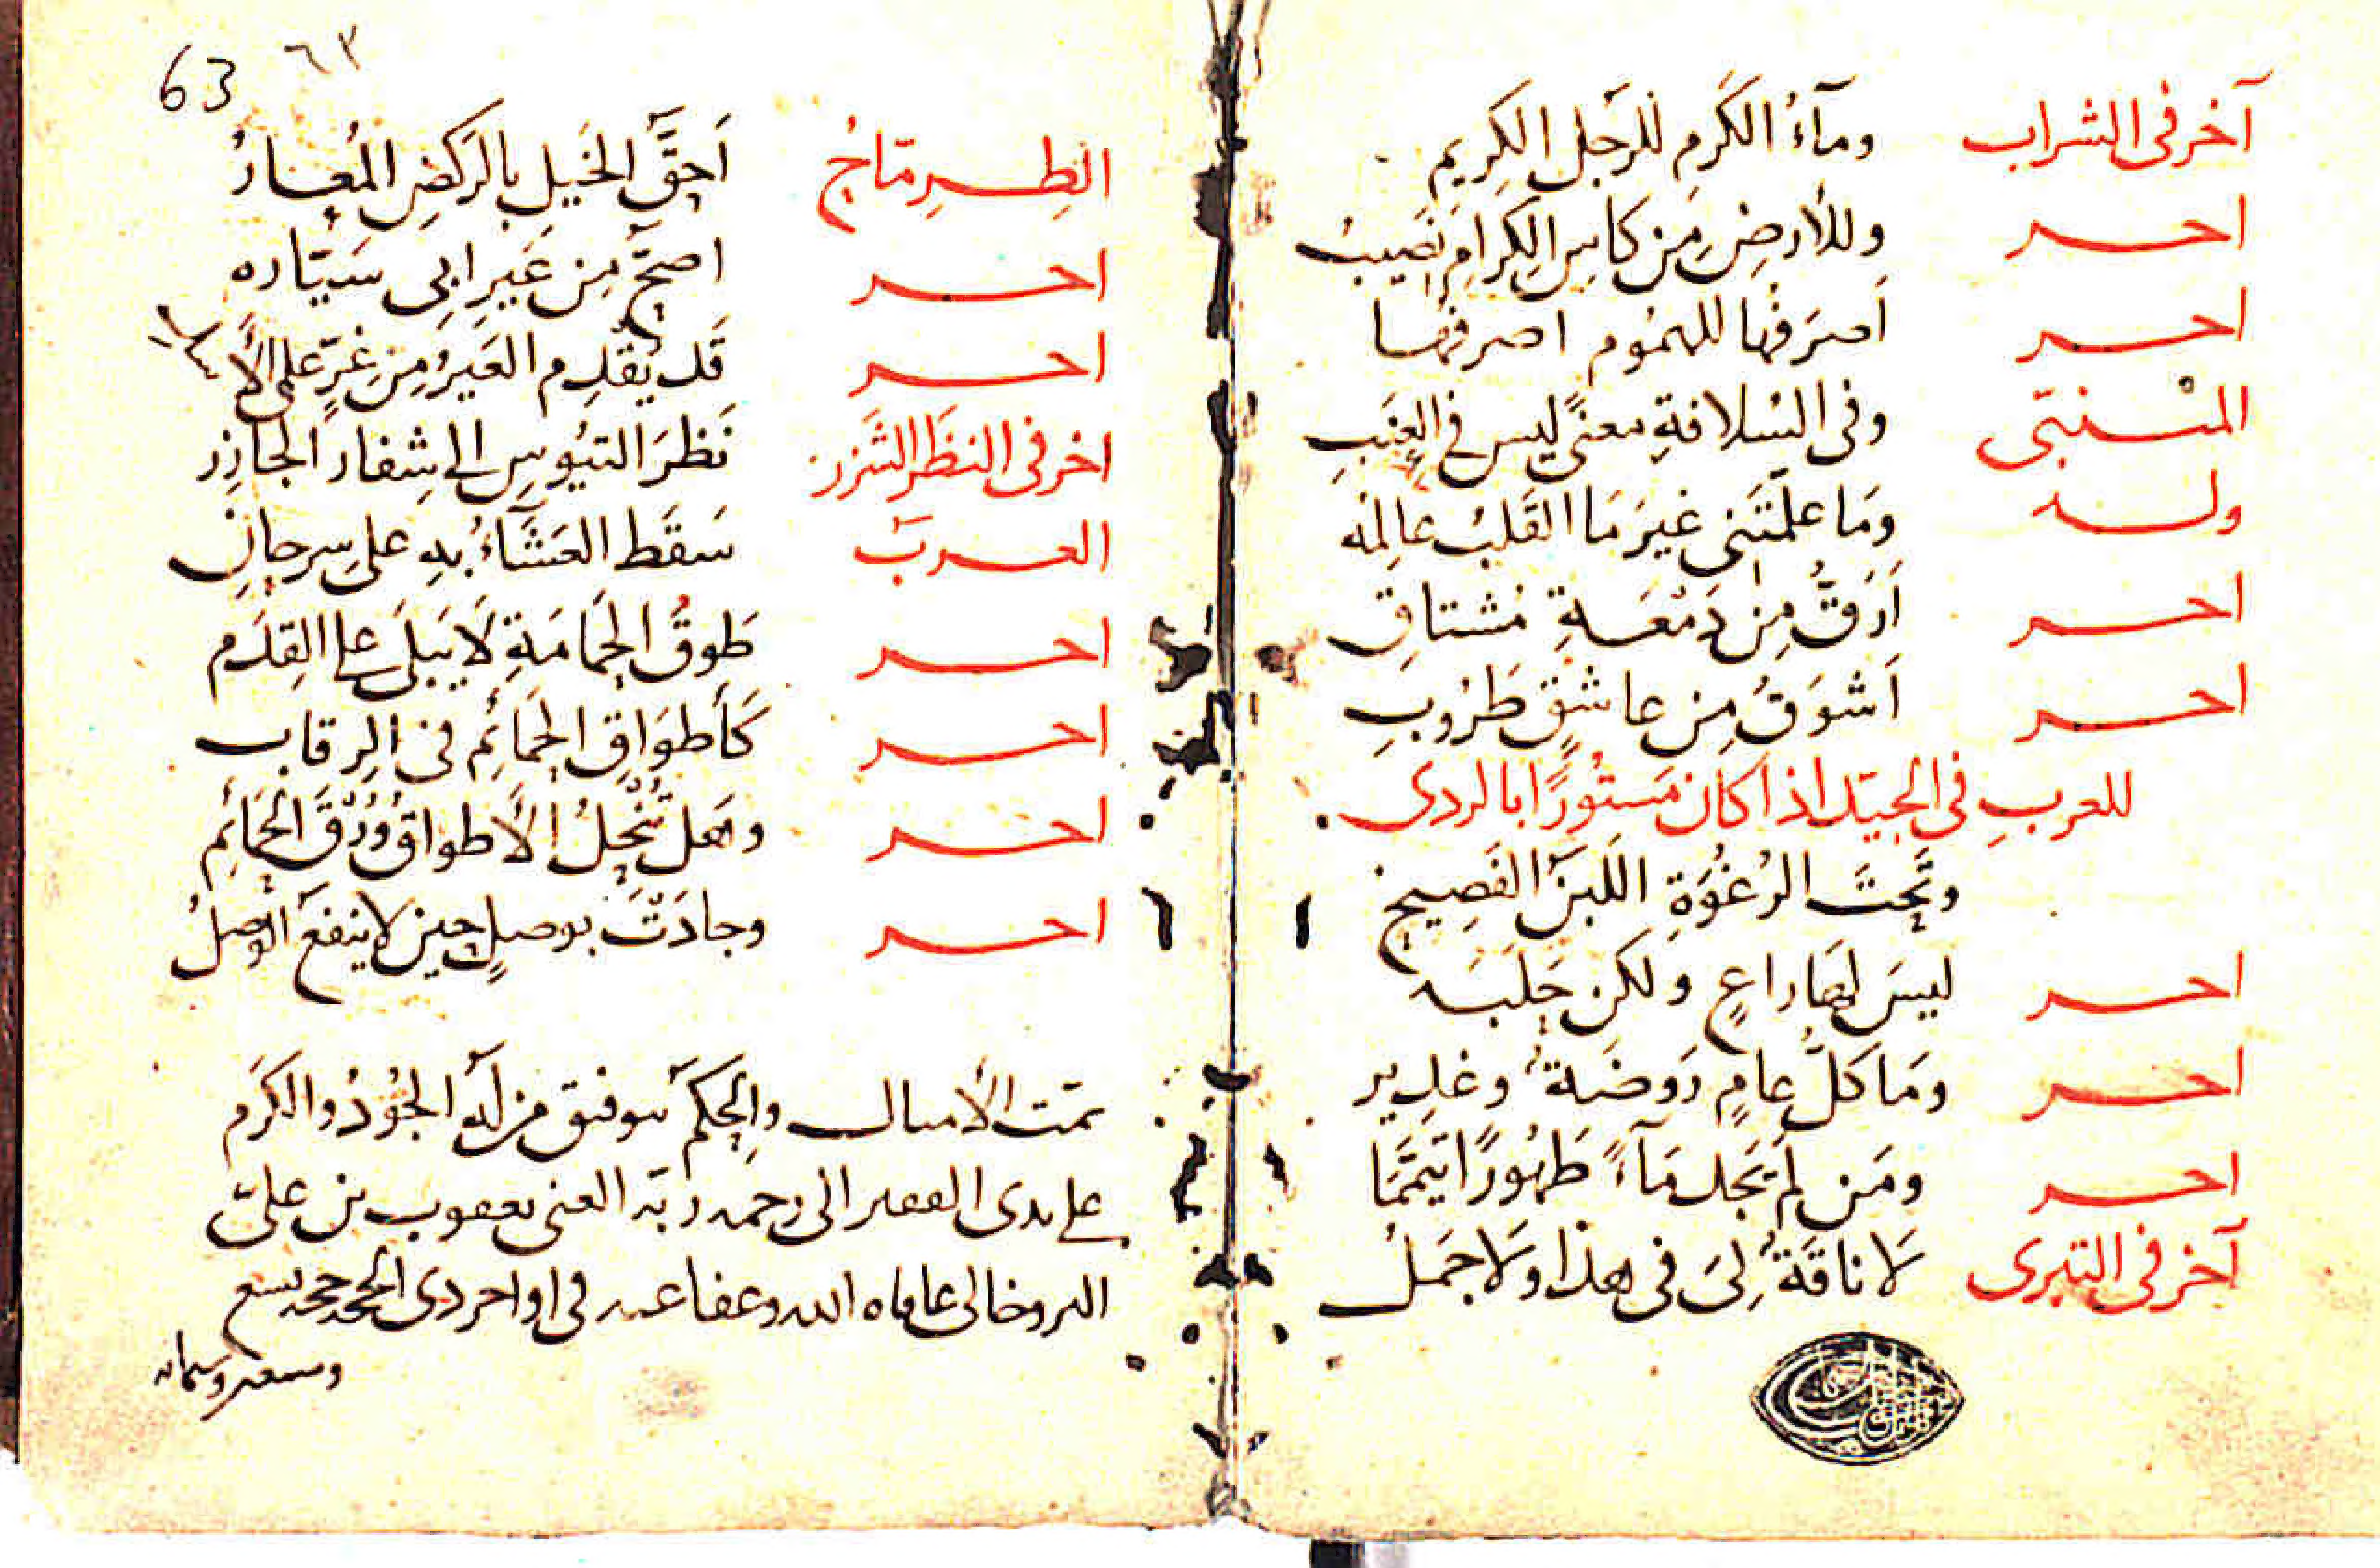 آخر فى الشراب ومآءُ الكَرمِ للرَجلِ الكِريمِ
احر وللأرضِ مِن كَاسِ الكِرامِ نَصيبُ
احر اَصرَفُها للهمُوم اصرفها
المتْنبّى وفى السُلافةِ معنىً ليس فى العِنَبِ
وله وَمَا علّمتَنى غيرَ مَا القَلبُ عَالِمُه
احر اَرَقُّ مِن دَمْعَةِ مُشتاقِ
احر اَشوَقُ مِن عاشقٍ طَرُوبِ
للعربِ فى الجيّد اذا كان مَستُورًا بالردى
وتَحتَ الرُغْوَةِ اللَبَنُ الفَصِيحُ
احر ليسَ لهَا راعٍ ولكن حَلَبَه
احر وَمَا كلُّ عامٍ رَوضَةٌ وغدير
احر ومَن لَم يَجد مَآءً طَهُورًا تيمّمَا
آخر فى التبرى لَا ناقَةٌ لِىَ فى هذا ولَا جَمَلُ
63 ٦٣
الطِرِمّاحُ اَحَقُّ الخَيلِ بالرَكضِ المُعَارُ
احر اصحّ مِن عَيرِ ابى سَيّاره
احر قَد يُقدِم العَيرُ مِن ذُعرٍ على الأسد
اخر فى النظَر الشَزر نَظَرَ التيُوسِ الى شِفار الجَازِر
العرب سَقَط العَشَآءُ بِهِ على سِرحانِ
احر طَوقُ الحَمامَةِ لَا يَبلَى على القِدَم
احر كَأطوَاقِ الحَمَائِم فى الرِقاب
احر وهَل تُنحَلُ الأطواقَ وُرْقُ الحَمَائِم
احر وجادَتْ بوصلٍ حين لا ينفعُ الوَصلُ
تمّت الأمثال والحِكَم بتوفيق من لَهُ الجُوْدُ والكَرَم
على يدى الفقير الى رحمة ربّه الغنى يعقوب بن علىّ
عافاه الله وعفا عنه فى اواخر ذى الحجة حجة تسع
وسبعين وثمانمائة